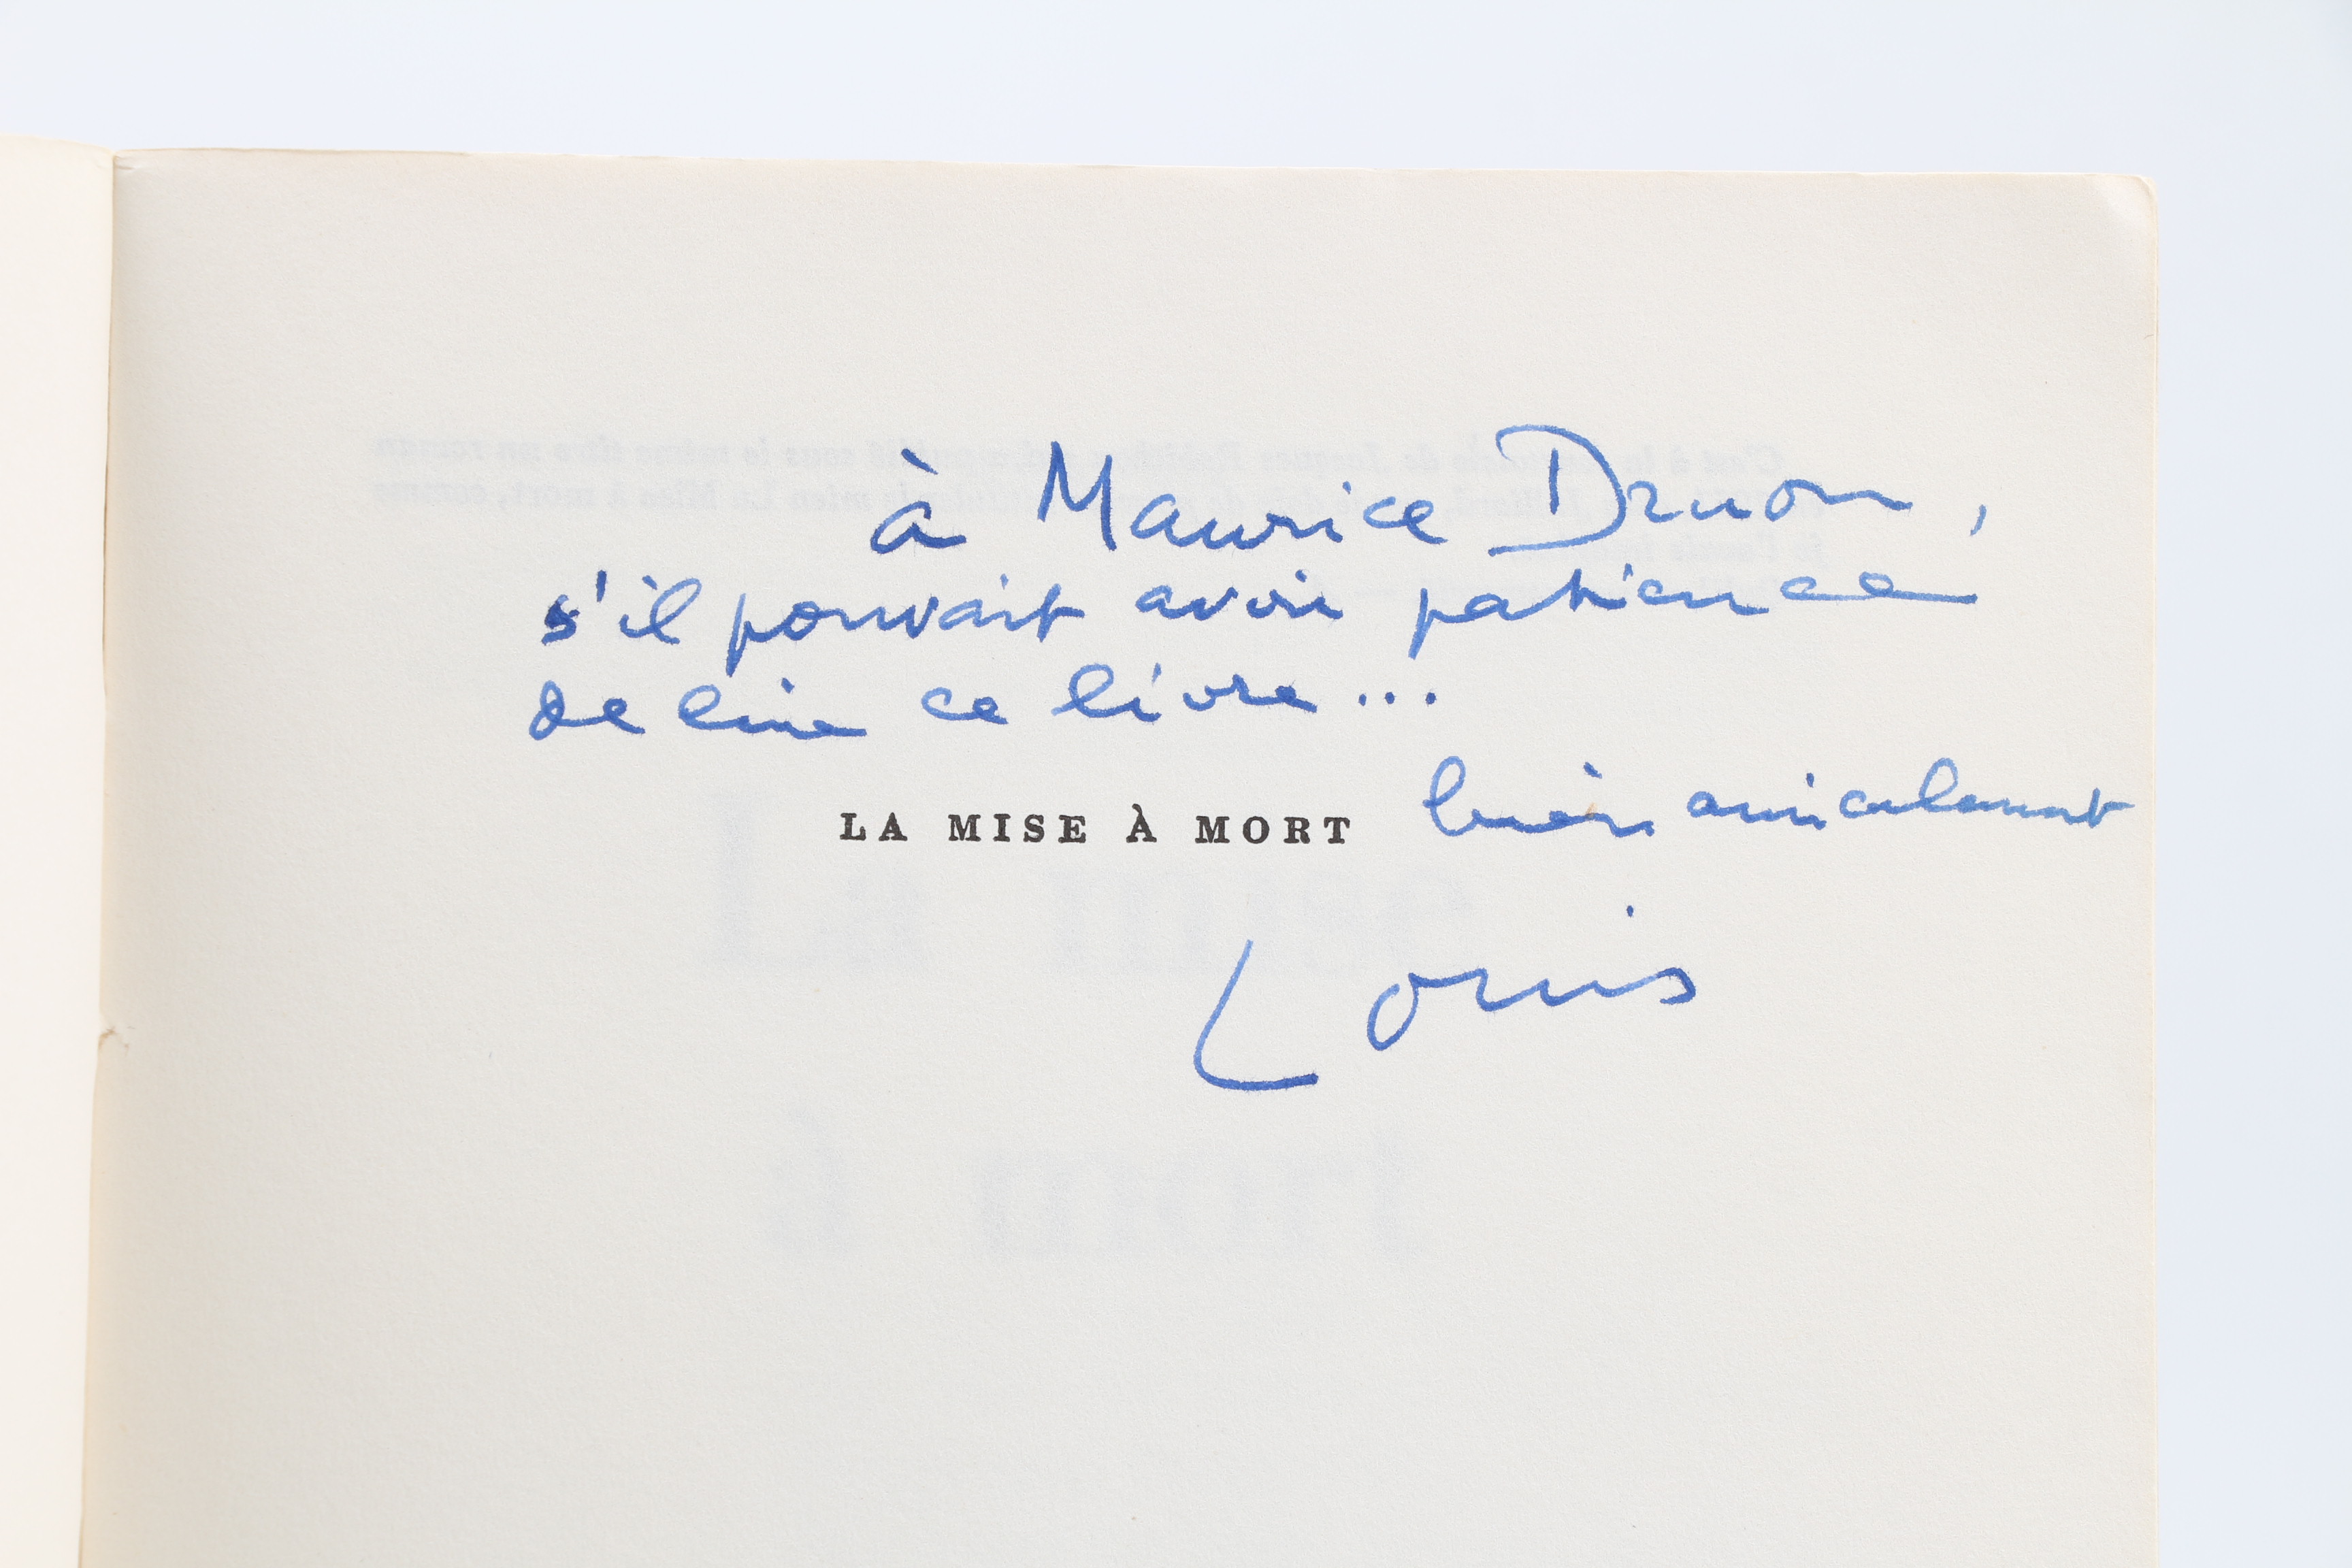 à Maurice Druon,
s'il pouvait avoir patience
de lire ce livre...
bien amicalement
LA MISE À MORT
Louis